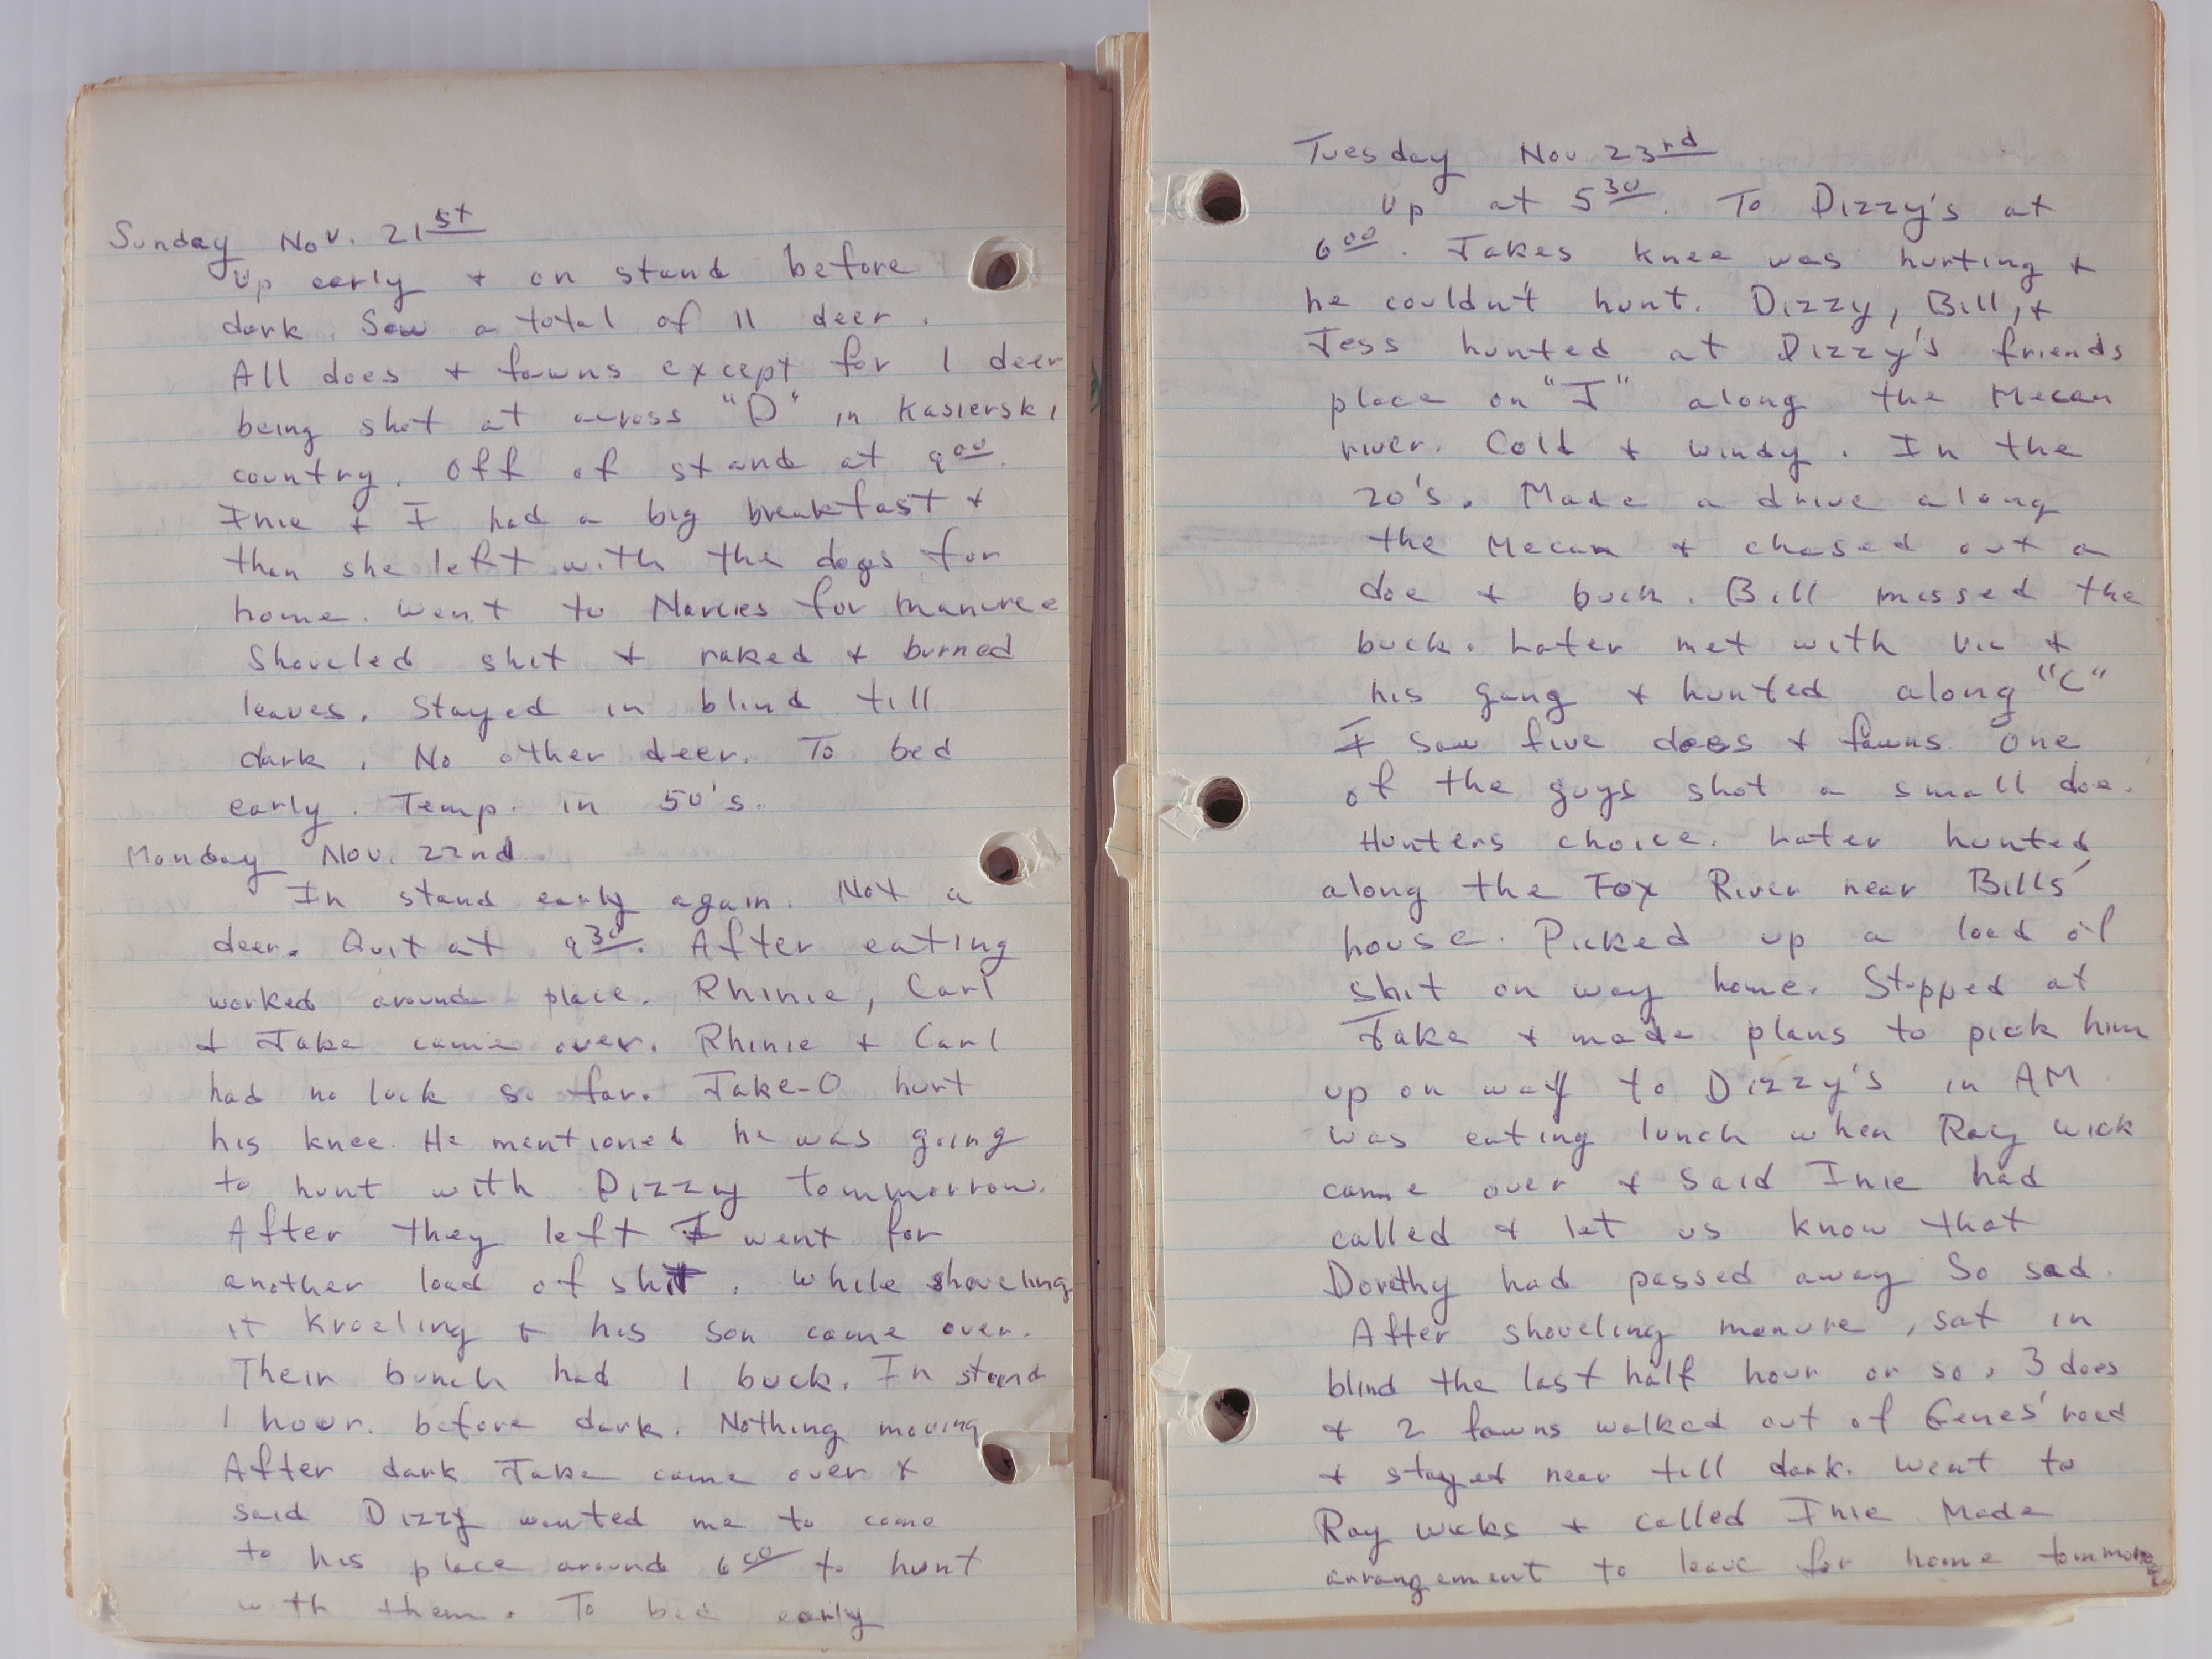 Sunday Nov. 21st
Up early + on stand before
dark. Saw a total of 11 deer.
All does + fawns except for 1 deer
being shot at across "D" in Kasierski
country. Off of stand at 9 00.
Inie + I had a big breakfast +
then she left with the dogs for
home. Went to Marcies for manuree
Shoveled shit + raked + burned
leaves. Stayed in blind till
dark. No other deer. To bed
early. Temp. in 50's.
Monday Nov. 22nd
In stand early again. Not a
deer. Quit at 9 30. After eating
worked around place. Rhinie, Carl
+ Jake came over. Rhinie + Carl
had no luck so far. Jake-O hurt
his knee. He mentioned he was going
to hunt with Dizzy tommorrow.
After they left I went for
another load of shit. While shoveling
it Kroeling + his son came over.
Their bunch had 1 buck. In stand
1 hour. before dark. Nothing moving
After dark Jake came over +
said Dizzy wanted me to come
to his place around 6 00 to hunt
with them. To bed early
Tuesday Nov. 23rd
Up at 5 30. To Dizzy's at
6 00. Jakes knee was hurting +
he couldn't hunt. Dizzy, Bill, +
Jess hunted at Dizzy's friends
place on "J" along the Mecan
river. Cold + windy. In the
20's. Made a drive along
the Mecan + chased out a
doe + buck. Bill missed the
buck. Later met with Vic +
his gang + hunted along "C"
I saw five does + fawns. One
of the guys shot a small doe.
Hunters choice. Later hunted
along the Fox River near Bills'
house. Picked up a load of
shit on way home. Stopped at
Jake + made plans to pick him
up on way to Dizzy's in AM
Was eating lunch when Ray Wick
came over + said Inie had
called + let us know that
Dorothy had passed away So sad.
After shoveling manure, sat in
blind the last half hour or so. 3 does
+ 2 fawns walked out of Genes' road
+ stayed near till dark. Went to
Ray Wicks + called Inie Made
arrangement to leave for home